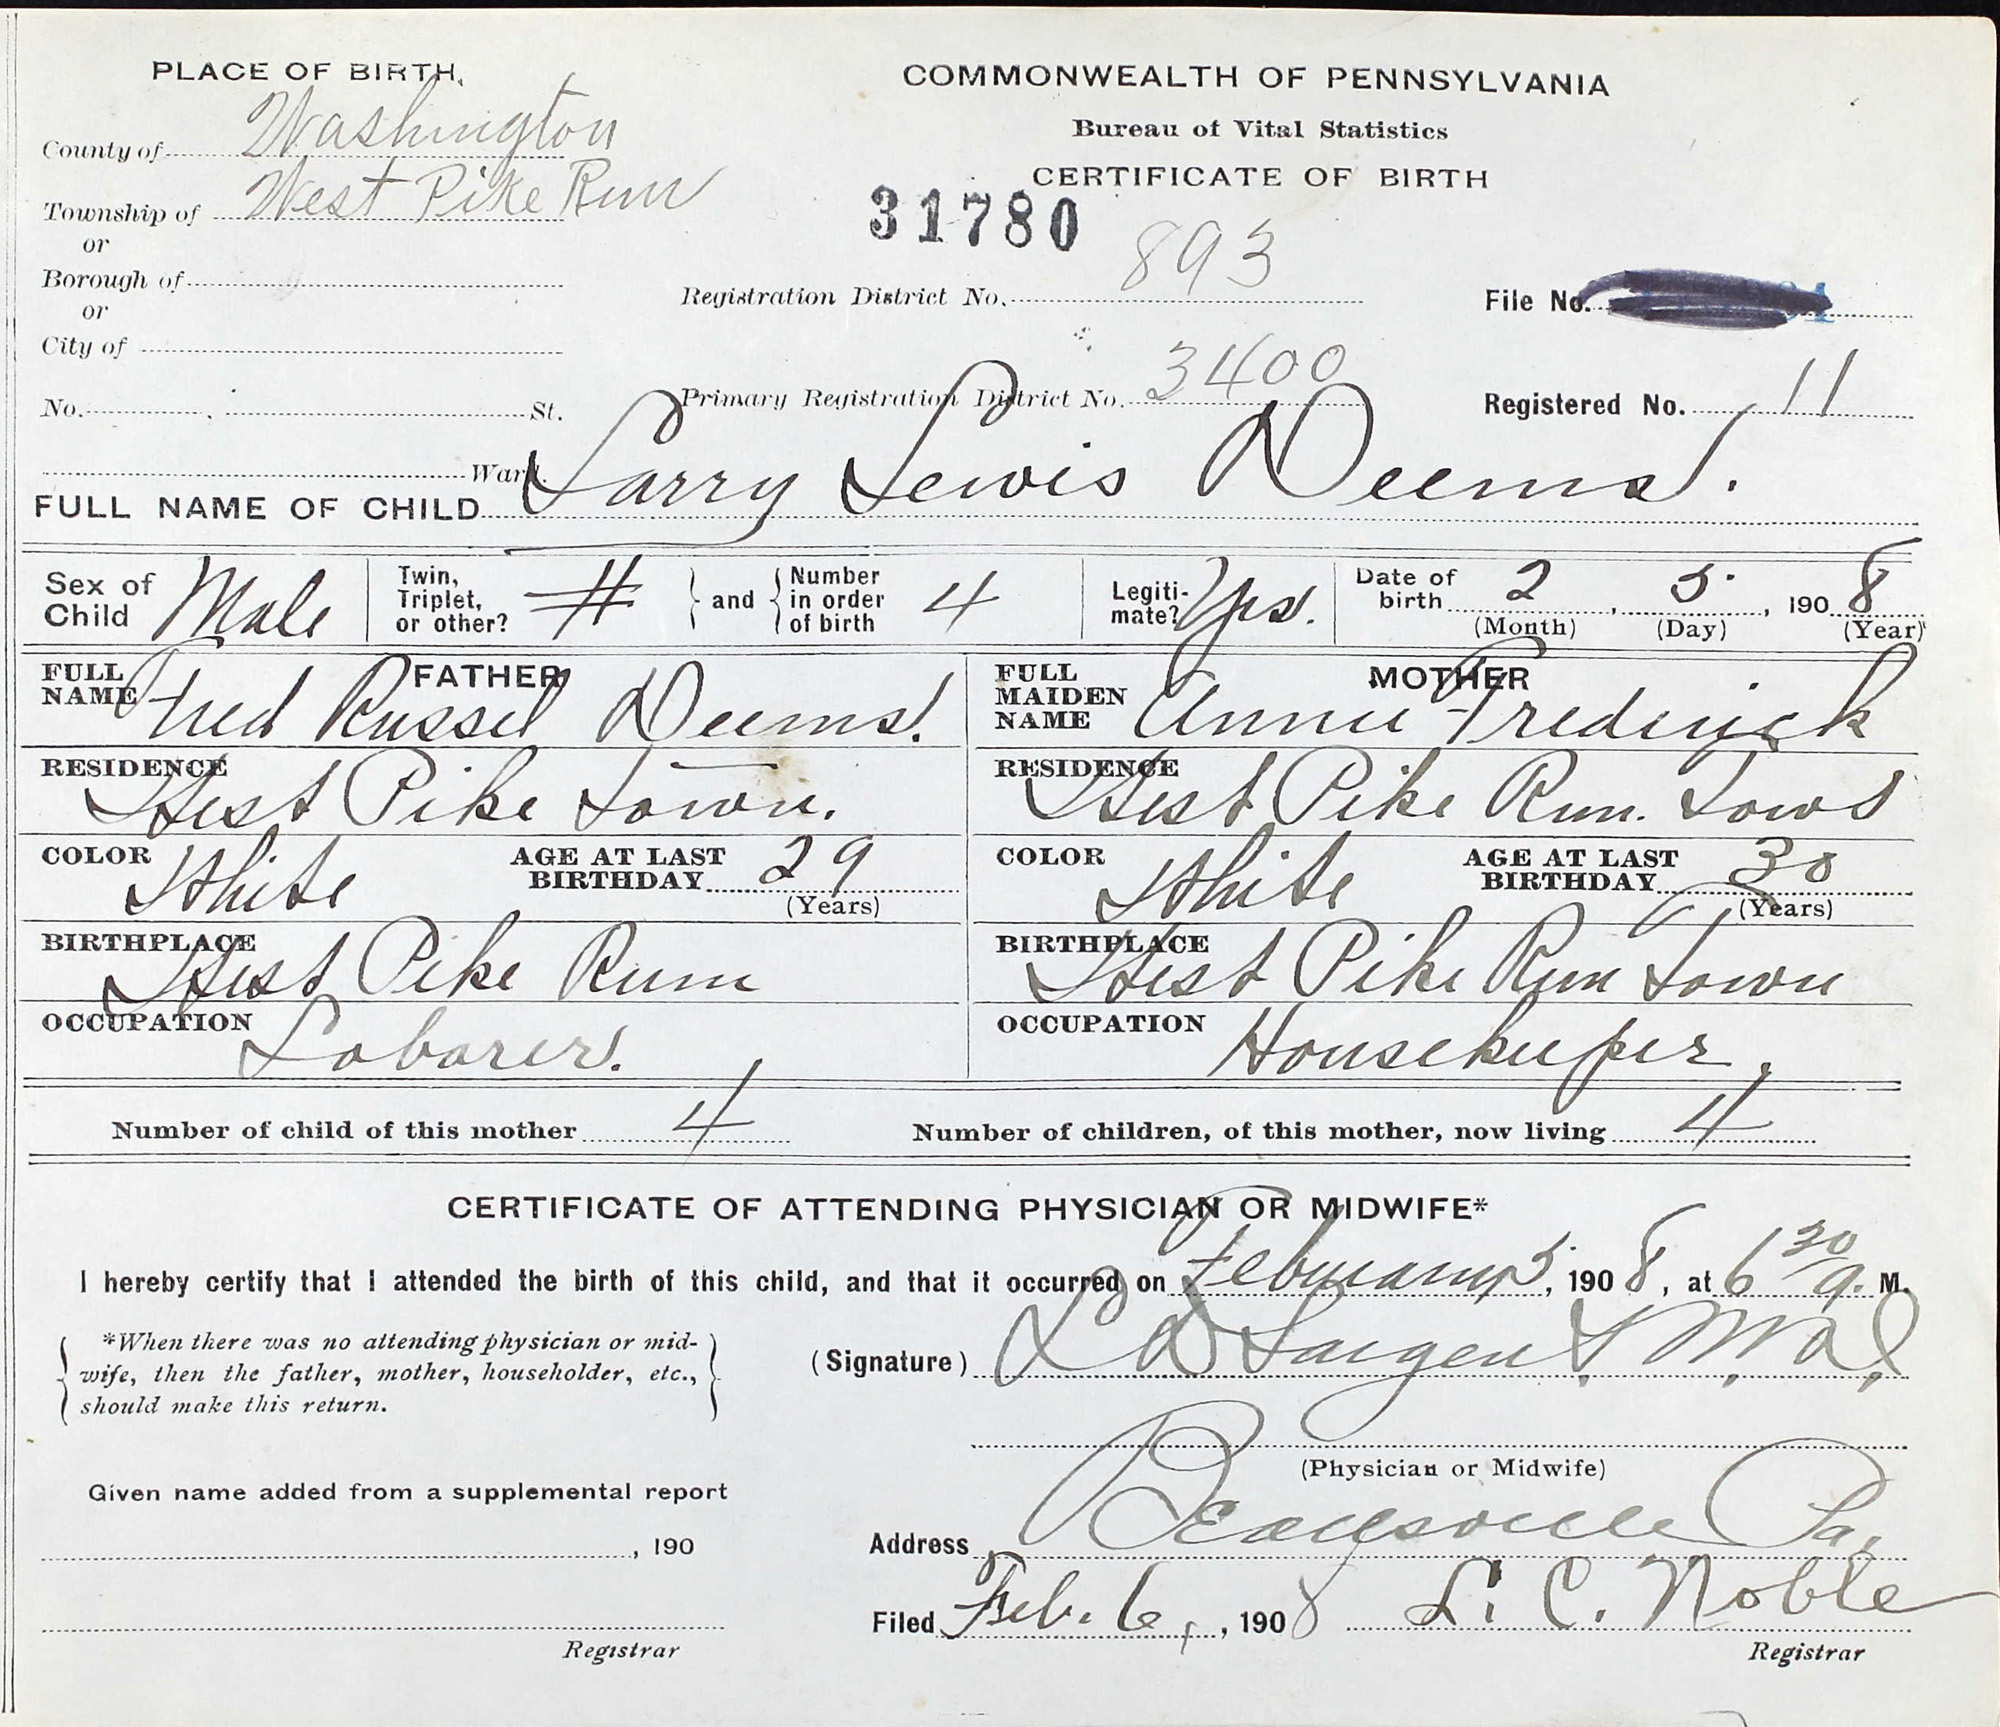 PLACE OF BIRTH.
County of Washington
Township of West Pike Run
or
Borough of
or
City of
No. , St.
Ward.
COMMONWEALTH OF PENNSYLVANIA
Bureau of Vital Statistics
CERTIFICATE OF BIRTH
31780
Registration District No. 893
File No.
Primary Registration District No. 3400
Registered No. 11
FULL NAME OF CHILD Larry Lewis Deems.
Sex of Child Male
Twin, Triplet, or other? #
and
Number in order of birth 4
Legitimate? Yes.
Date of birth 2, 5, 1908
(Month) (Day) (Year)
FATHER
FULL NAME Fred Russel Deems.
RESIDENCE West Pike Town.
COLOR White
AGE AT LAST BIRTHDAY 29
(Years)
BIRTHPLACE West Pike Run
OCCUPATION Laborer.
MOTHER
FULL MAIDEN NAME Annie Frederick
RESIDENCE West Pike Run. Town
COLOR White
AGE AT LAST BIRTHDAY 30
(Years)
BIRTHPLACE West Pike Run Town
OCCUPATION Housekeeper.
Number of child of this mother 4
Number of children, of this mother, now living 4
CERTIFICATE OF ATTENDING PHYSICIAN OR MIDWIFE*
I hereby certify that I attended the birth of this child, and that it occurred on February 5, 1908, at 6 30 a. M.
*When there was no attending physician or mid-
wife, then the father, mother, householder, etc.,
should make this return.
(Signature) L D Sargent, M.D.
(Physician or Midwife)
Given name added from a supplemental report
, 190
Registrar
Address Beallsville Pa.
Filed Feb. 6, , 1908 L. C. Noble
Registrar